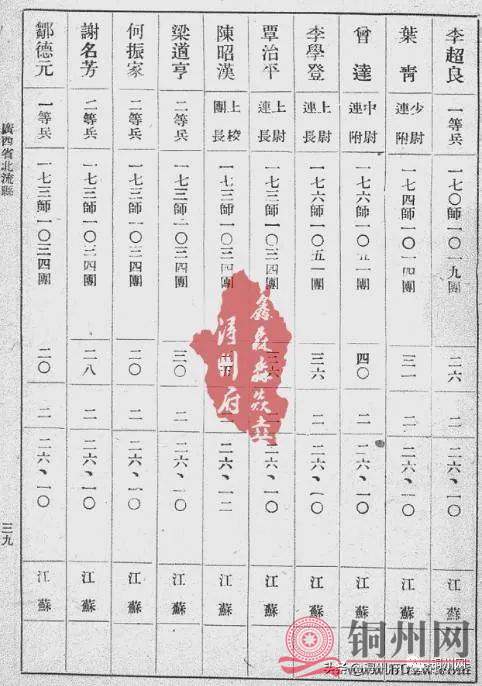 李超良 一等兵 一七〇師一〇一九團 二六 二 二六、一〇 江蘇
葉青 少尉連附 一七四師一〇一四團 二 二六、一〇 江蘇
曾達 中尉連附 一七六師一〇五一團 四〇 二 二六、一〇 江蘇
李學登 上尉連長 一七六師一〇五一團 三六 二 二六、一〇 江蘇
覃治平 上尉連長 一七三師一〇三四團 三六 二 二六、一〇 江蘇
陳昭漢 上校團長 一七三師一〇三四團 二六、一二 江蘇
梁道亨 二等兵 一七三師一〇三四團 三〇 二 二六、一〇 江蘇
何振家 二等兵 一七三師一〇三四團 二〇 二 二六、一〇 江蘇
謝名芳 二等兵 一七三師一〇三四團 二八 二 二六、一〇 江蘇
鄒德元 一等兵 一七三師一〇三四團 二〇 二 二六、一〇 江蘇
廣西省北流縣 三九
鑫森淼焱垚
潯州府
铜州网